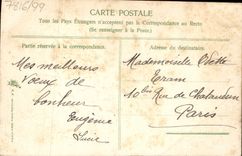 7816/99
CARTE POSTALE
Tous les Pays Étrangers n'acceptent pas la Correspondance au Recto
(Se renseigner à la Poste.)
Partie réservée à la correspondance.
Adresse du destinataire.
Mes meilleurs
voeux de
bonheur
Eugénie
Lucie
Mademoiselle Odette
10 bis Rue de Chalandean
Paris